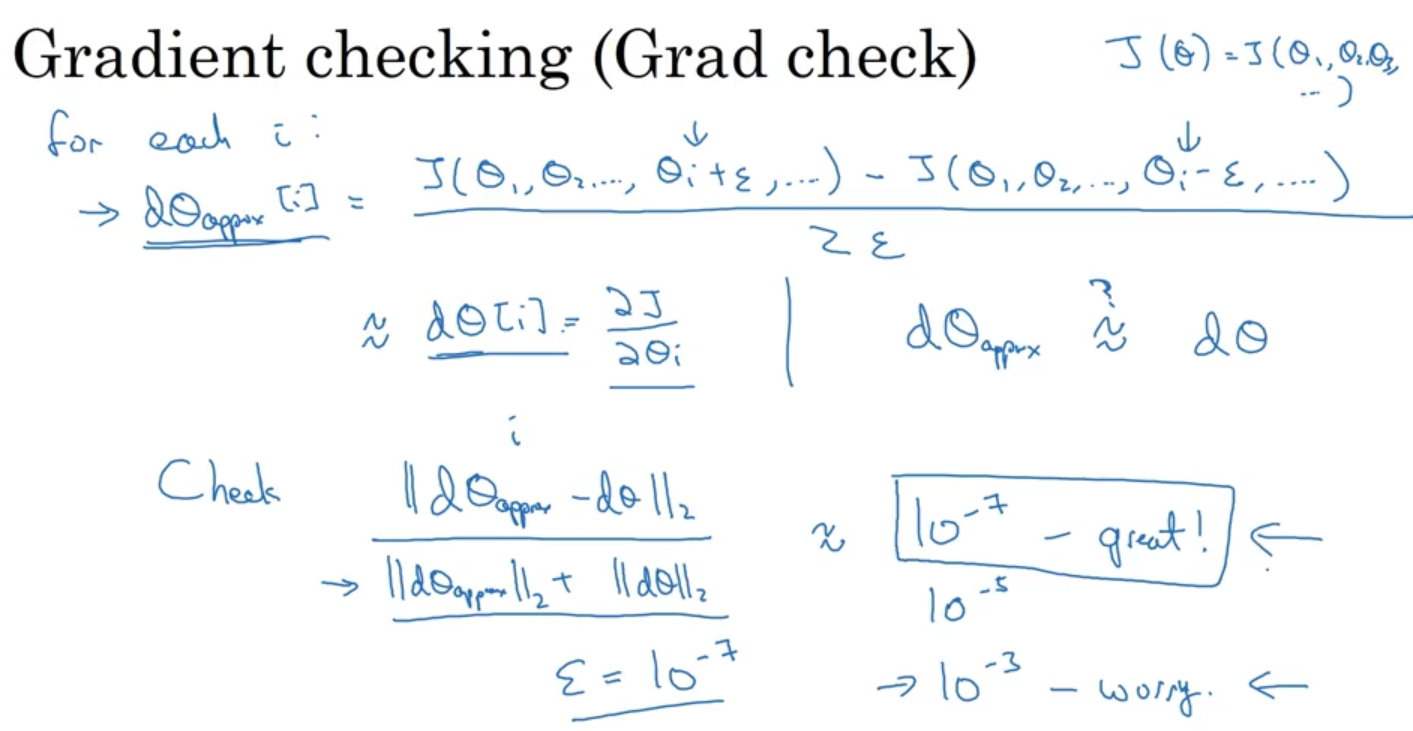 Gradient checking (Grad check)
J(θ) = J(θ₁, θ₂, θ₃, ...)
for each i:
→ dθapprox[i] = (J(θ₁, θ₂, ..., θᵢ+ε, ...) - J(θ₁, θ₂, ..., θᵢ-ε, ....)) / 2ε
≈ dθ[i] = ∂J/∂θᵢ | dθapprox ≈? dθ
i
Check ‖dθapprox - dθ‖₂ / (‖dθapprox‖₂ + ‖dθ‖₂) ≈ 10⁻⁷ - great! ←
10⁻⁵
ε = 10⁻⁷ → 10⁻³ - worry. ←